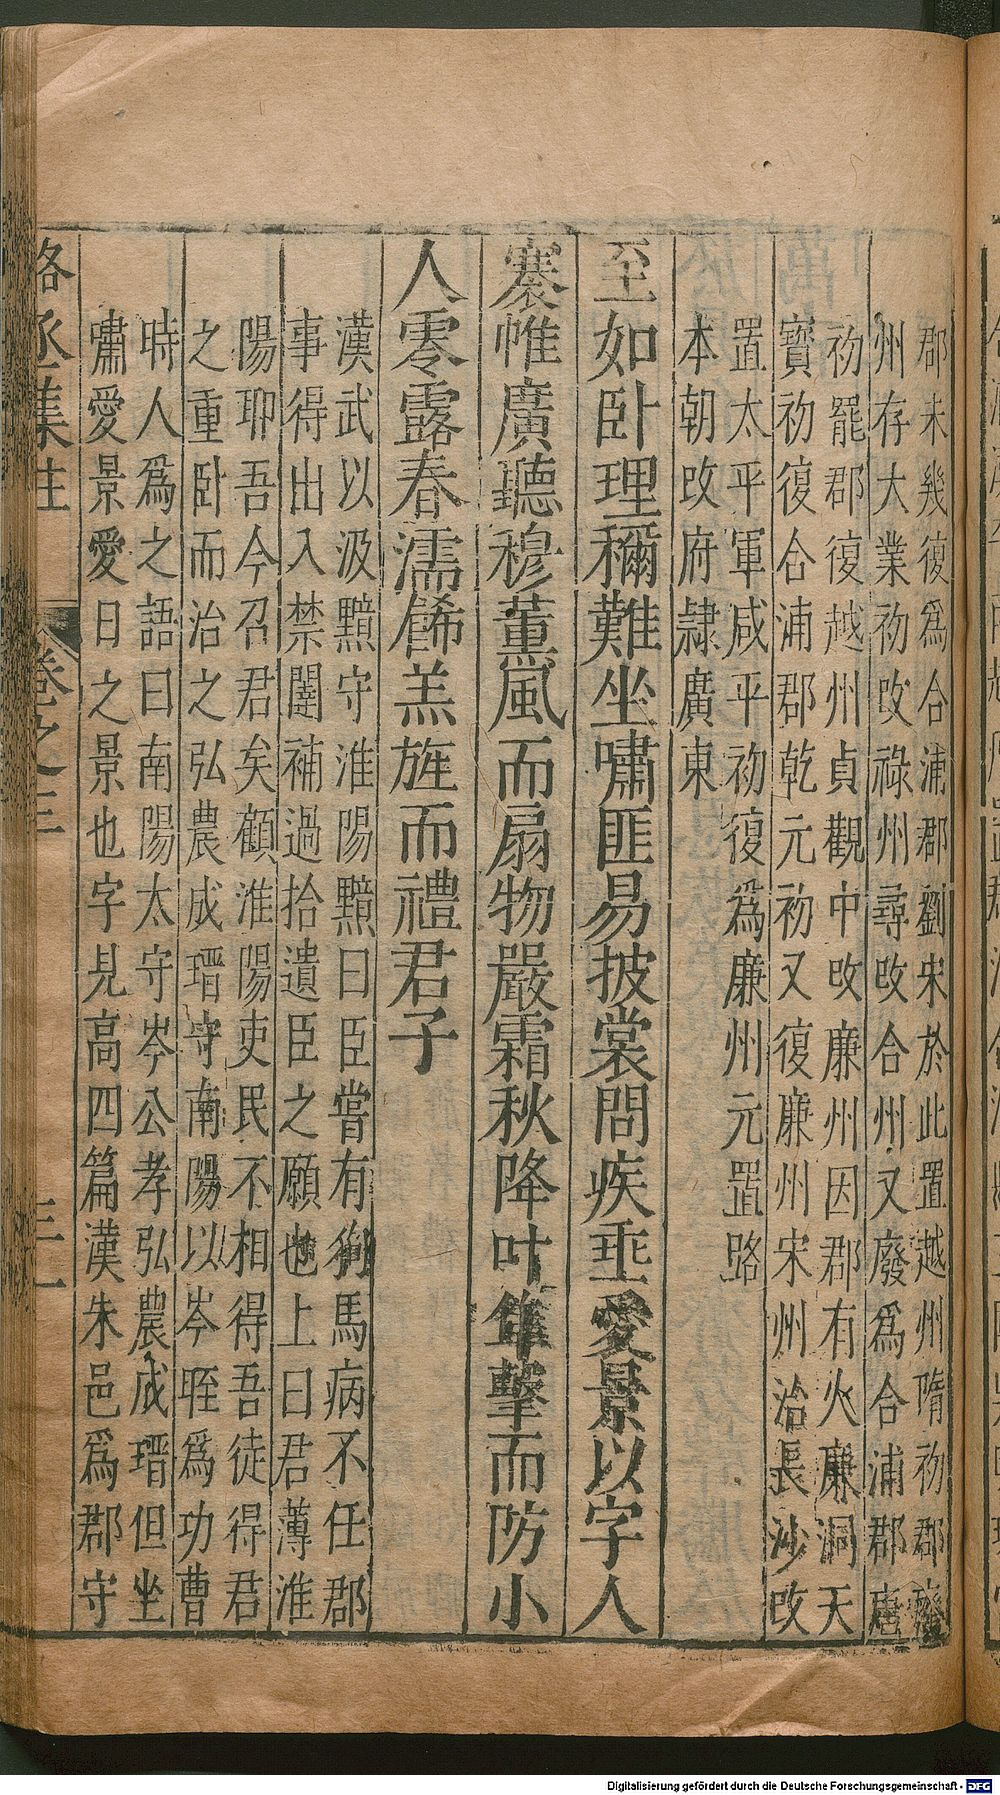 郡未幾復爲合浦郡劉宋於此置越州隋初郡廢
州存大業初改祿州尋改合州又廢爲合浦郡唐
初罷郡復越州貞觀中改廉州因郡有大廉洞天
寶初復合浦郡乾元初又復廉州宋州治長沙改
置太平軍咸平初復爲廉州元置路
本朝改府隸廣東
至如卧理稱難坐嘯匪易披裳問疾垂愛景以字人
褰帷廣聽穆薰風而扇物嚴霜秋降叶隼擊而防小
人零露春濡餙羔旌而禮君子
漢武以汲黯守淮陽黯曰臣嘗有狗馬病不任郡
事得出入禁闥補過拾遺臣之願也上曰君薄淮
陽耶吾今召君矣顧淮陽吏民不相得吾徒得君
之重卧而治之弘農成瑨守南陽以岑晊爲功曹
時人爲之語曰南陽太守岑公孝弘農成瑨但坐
嘯愛景愛日之景也字見高四篇漢朱邑爲郡守
駱丞集註 卷之三 三一
Digitalisierung gefördert durch die Deutsche Forschungsgemeinschaft - DFG